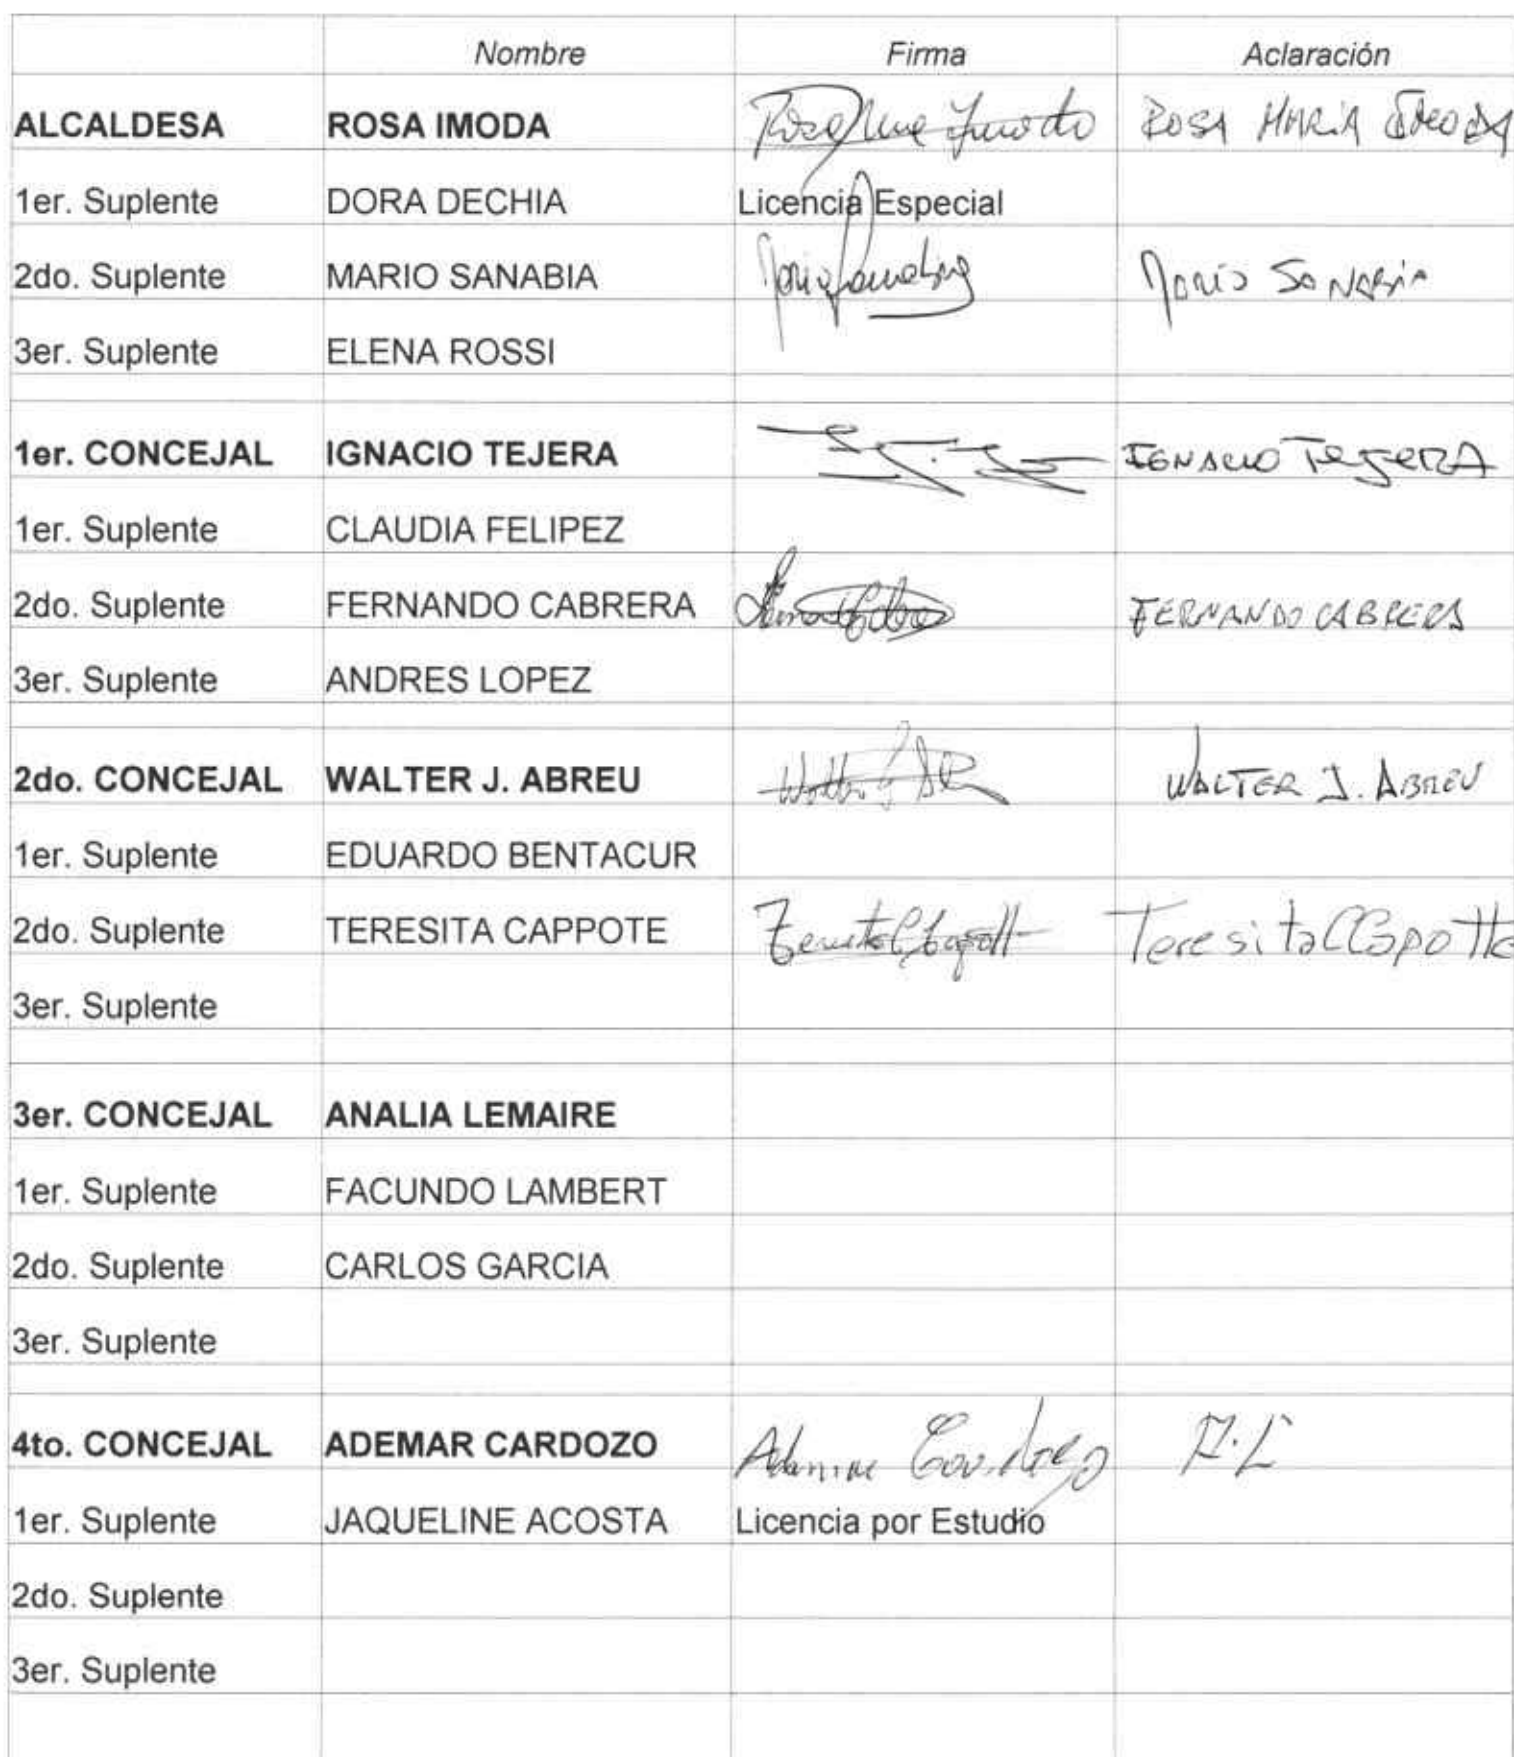 Nombre Firma Aclaración
ALCALDESA ROSA IMODA ROSA MARIA IMODA
1er. Suplente DORA DECHIA Licencia Especial
2do. Suplente MARIO SANABIA Mario SANABIA
3er. Suplente ELENA ROSSI
1er. CONCEJAL IGNACIO TEJERA IGNACIO TEJERA
1er. Suplente CLAUDIA FELIPEZ
2do. Suplente FERNANDO CABRERA FERNANDO CABRERA
3er. Suplente ANDRES LOPEZ
2do. CONCEJAL WALTER J. ABREU WALTER J. ABREU
1er. Suplente EDUARDO BENTACUR
2do. Suplente TERESITA CAPPOTE Teresita C Capotte
3er. Suplente
3er. CONCEJAL ANALIA LEMAIRE
1er. Suplente FACUNDO LAMBERT
2do. Suplente CARLOS GARCIA
3er. Suplente
4to. CONCEJAL ADEMAR CARDOZO
1er. Suplente JAQUELINE ACOSTA Licencia por Estudio
2do. Suplente
3er. Suplente